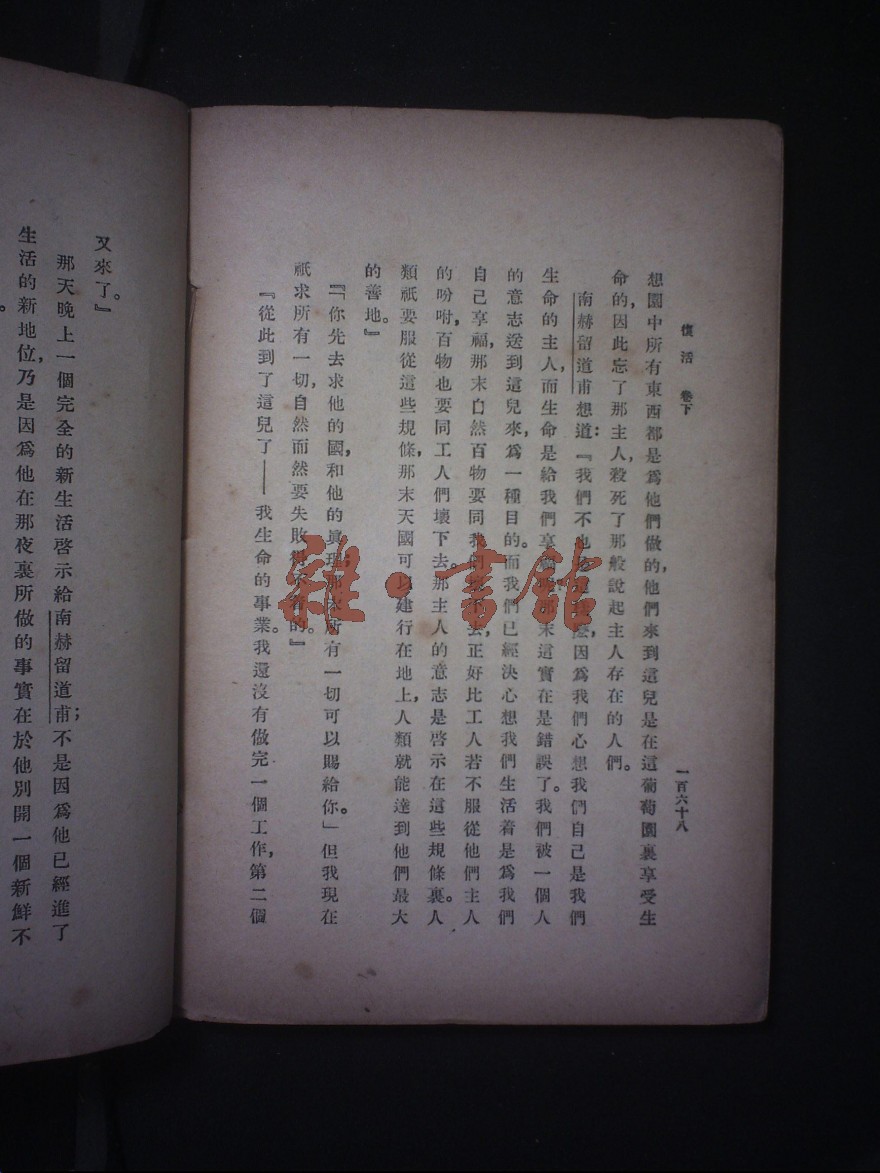 復活 卷下
一百六十八
想園中所有東西都是爲他們做的，他們來到這兒是在這葡萄園裏享受生
命的，因此忘了那主人，殺死了那般說起主人存在的人們。
南赫留道甫想道：『我們不也是這樣麼，因爲我們心想我們自己是我們
生命的主人，而生命是給我們享福的那末這實在是錯誤了。我們被一個人
的意志送到這兒來，爲一種目的。而我們已經決心想我們生活着是爲我們
自己享福，那末自然百物要同我們壞下去，正好比工人若不服從他們主人
的吩咐，百物也要同工人們壞下去。那主人的意志是啓示在這些規條裏。人
類祇要服從這些規條，那末天國可以建行在地上，人類就能達到他們最大
的善地。』
『「你先去求他的國，和他的眞理，那末所有一切可以賜給你。」但我現在
祇求所有一切，自然而然要失敗得不着的。』
『從此到了這兒了——我生命的事業。我還沒有做完一個工作，第二個
又來了。』
那天晚上一個完全的新生活啓示給南赫留道甫；不是因爲他已經進了
生活的新地位，乃是因爲他在那夜裏所做的事實在於他別開一個新鮮不
雜·書館